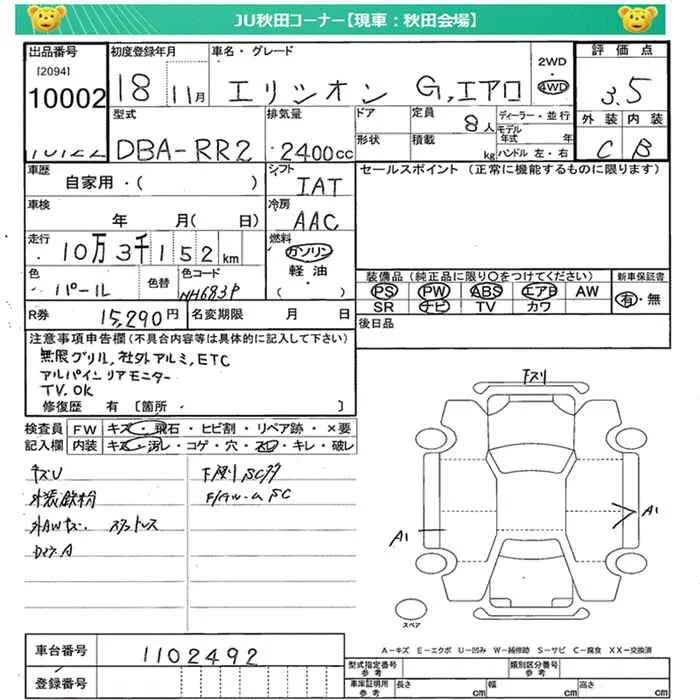 JU秋田コーナー【現車：秋田会場】
出品番号
[2094]
10002
初度登録年月
18 11月
車名・グレード
エリシオン G,エアロ
2WD
4WD
評価点
3.5
外装 内装
C B
型式
DBA-RR2
排気量
2400cc
ドア
形状
定員
8人
積載
kg
ディーラー・並行
モデル年式 年
ハンドル 左・右
車歴
自家用・( )
シフト
IAT
セールスポイント (正常に機能するものに限ります)
車検
年 月( 日)
冷房
AAC
走行
10万3千152km
燃料
ガソリン
軽油
( )
色
パール
色替
色コード
NH683P
装備品 (純正品に限り○をつけてください)
PS PW ABS エアB AW
SR ナビ TV カワ
新車保証書
有・無
R券
15,290円
名変期限 月 日
後日品
注意事項申告欄 (不具合内容等は具体的に記入して下さい)
無限グリル,社外アルミ,ETC
アルパインリアモニター
TV.OK
修復歴 有 [箇所・ ]
検査員 FW キズ・飛石・ヒビ割・リペア跡・×要
記入欄 内装 キズ・汚レ・コゲ・穴・スレ・キレ・破レ
キズU
外装鉄粉
下スリ
A1
A1
スペア
A－キズ E－エクボ U－凹み W－補修跡 S－サビ C－腐食 XX－交換済
車台番号
1102492
登録番号
型式指定番号
参考
類別区分番号
参考
車庫証明用
参考
長さ cm 幅 cm 高さ cm